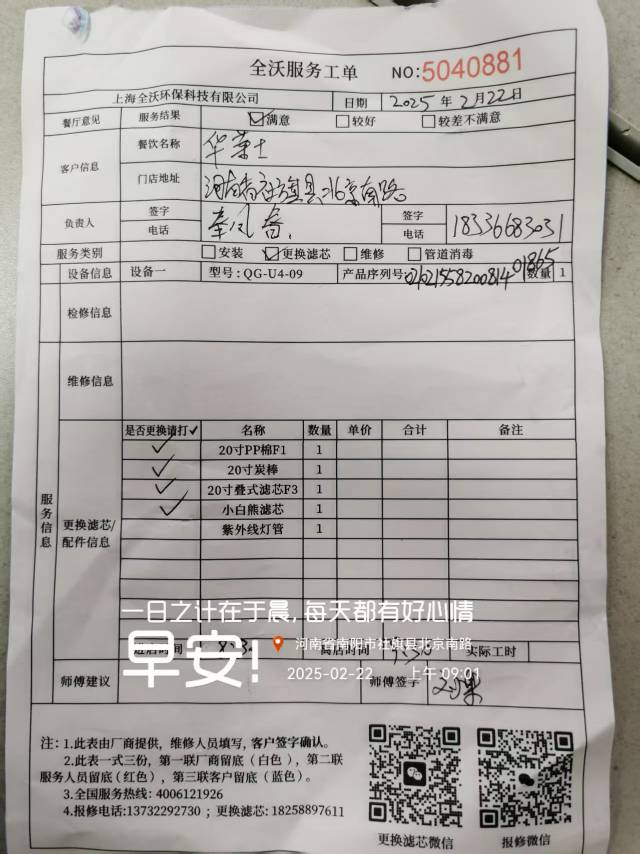 全沃服务工单 NO:5040881
上海全沃环保科技有限公司 日期 2025年2月22日
餐厅意见 服务结果 ☑满意 □较好 □较差不满意
客户信息 餐饮名称 华莱士
门店地址 河南省社旗县北京南路
负责人 签字 电话 签字 电话 18336683031
服务类别 □安装 ☑更换滤芯 □维修 □管道消毒
设备信息 设备一 型号:QG-U4-09 产品序列号: 数量 1
检修信息
维修信息
服务信息
更换滤芯/配件信息
是否更换请打✓ 名称 数量 单价 合计 备注
✓ 20寸PP棉F1 1
✓ 20寸炭棒 1
✓ 20寸叠式滤芯F3 1
✓ 小白熊滤芯 1
紫外线灯管 1
一日之计在于晨,每天都有好心情
早安!
河南省南阳市社旗县北京南路
2025-02-22 上午 09:01
进店时间 离店时间 实际工时
师傅建议 师傅签字
注:1.此表由厂商提供,维修人员填写,客户签字确认。
2.此表一式三份,第一联厂商留底(白色),第二联
服务人员留底(红色),第三联客户留底(蓝色)。
3.全国服务热线:4006121926
4.报修电话:13732292730;更换滤芯:18258897611
更换滤芯微信 报修微信